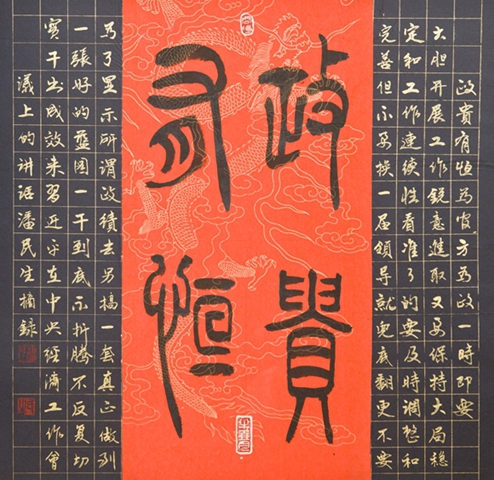 政貴
有恒
政贵有恒为官方为政一时即要
大胆开展工作锐意进取又要保持大局稳
定和工作连续性看准了的要及时调整和
完善但不要换一届领导就兜底翻更不要
为了显示所谓政绩去另搞一套真正做到
一张好的蓝图一干到底不折腾不反复切
实干出成效来习近平在中央经济工作会
议上的讲话潘民生摘录